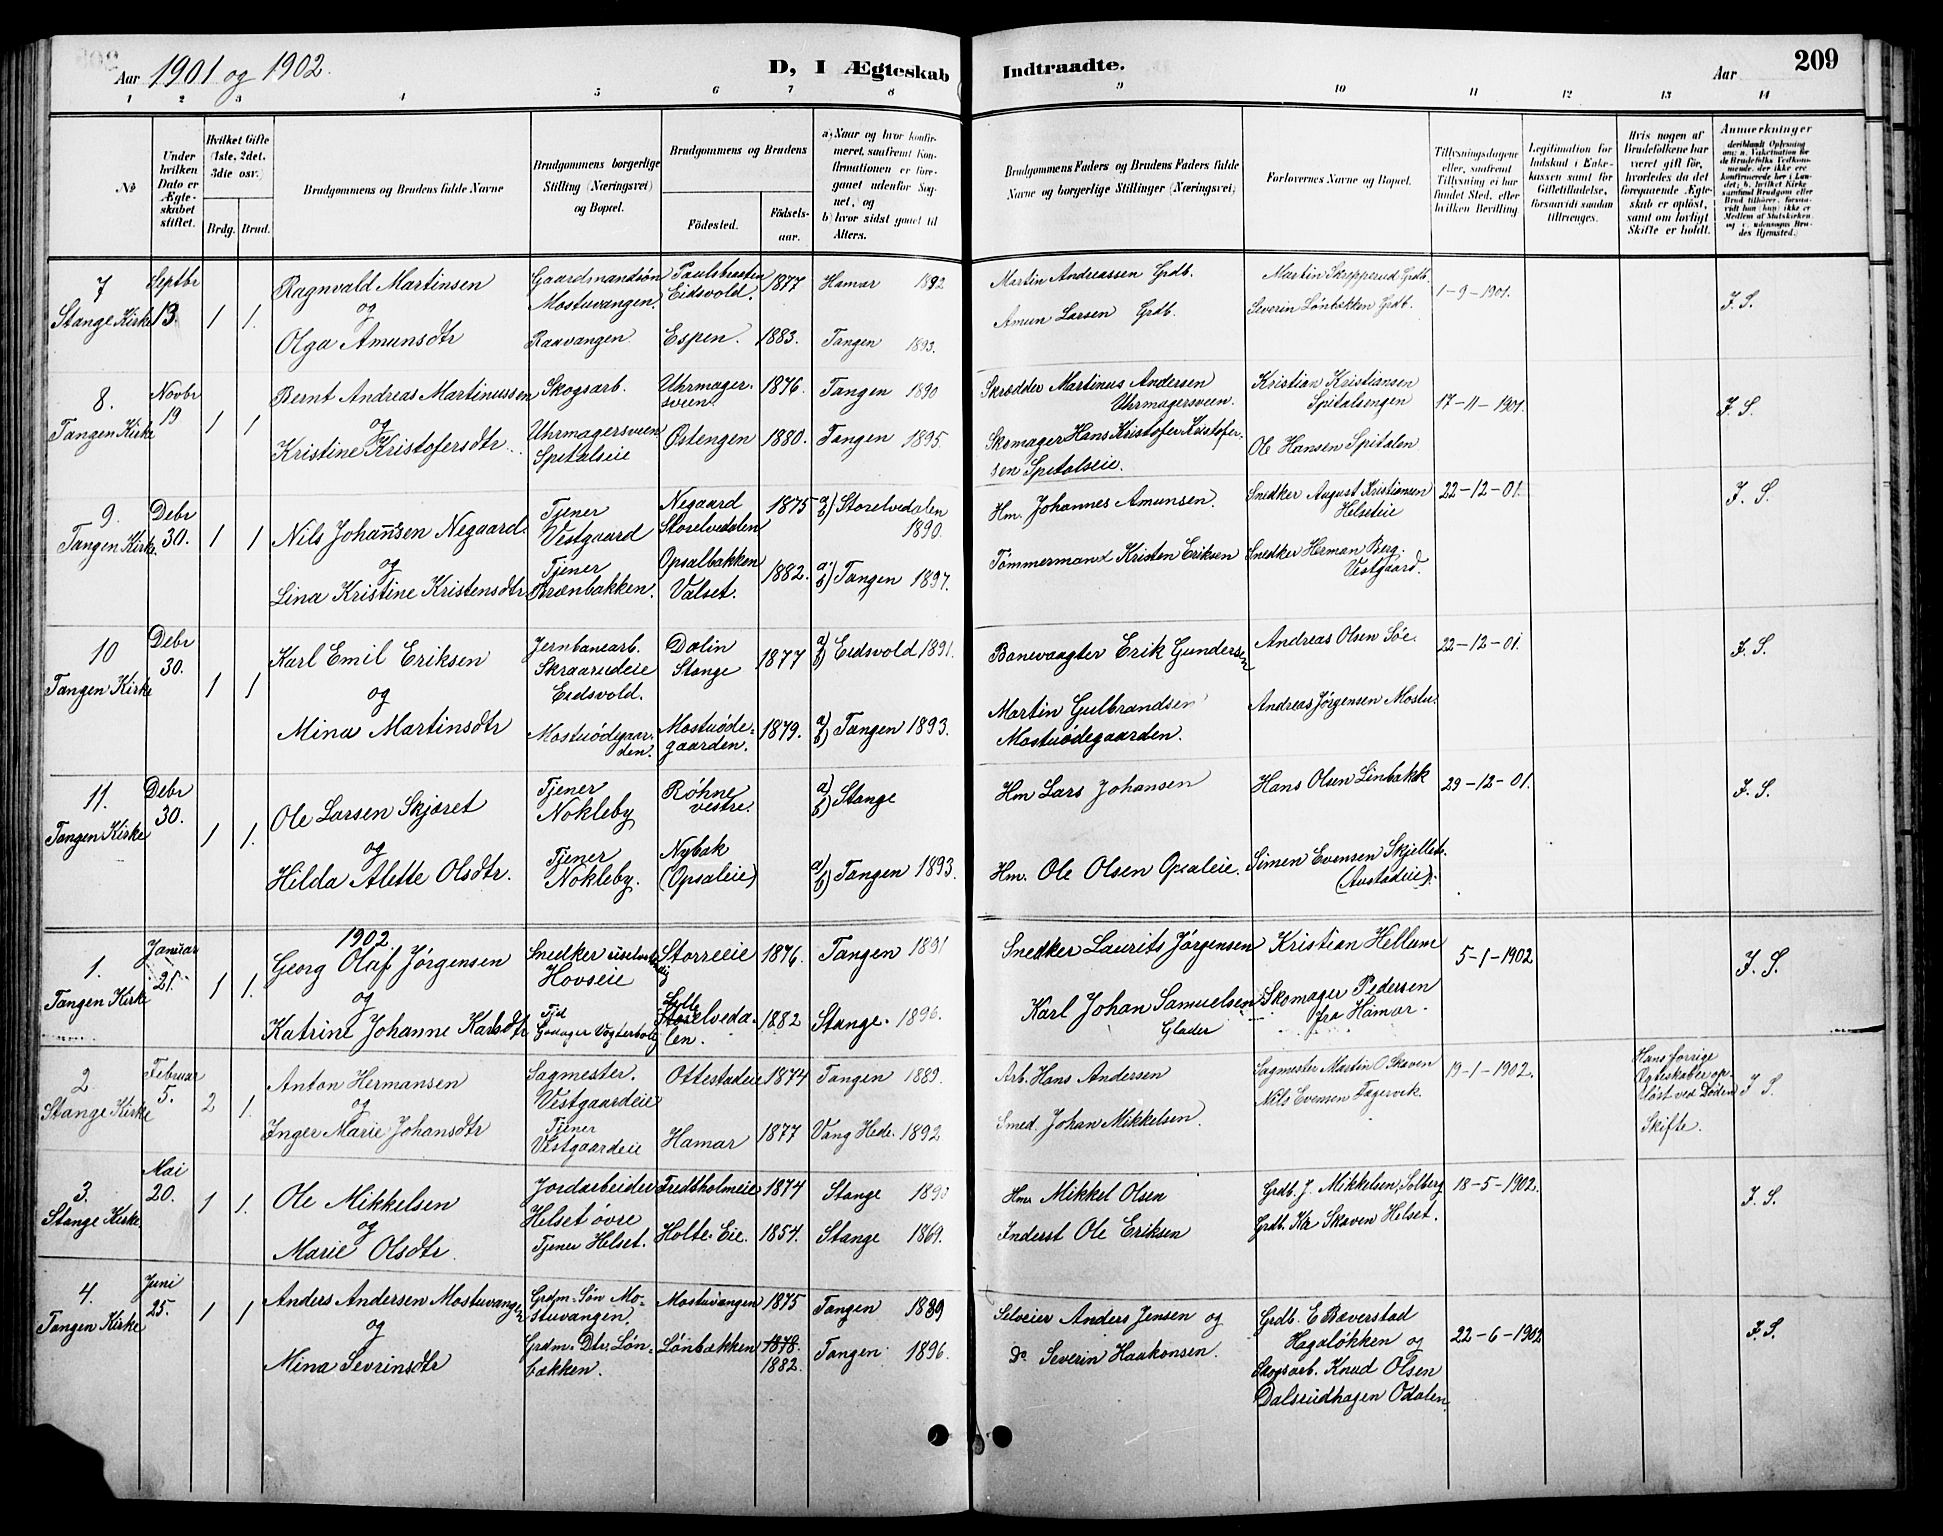 Aar 1901 og 1902.
D, I Ægteskab
Indtraadte.
Aar
209
1 2 3 4 5 6 7 8 9 10 11 12 13 14
№
Under hvilken Dato er Ægteskabet stiftet.
Hvilket Gifte (1ste, 2det, 3die osv.)
Brdg. Brud.
Brudgommens og Brudens fulde Navne
Brudgommens borgerlige Stilling (Næringsvei) og Bopæl.
Brudgommens og Brudens
Fødested.
Fødselsaar.
a) Naar og hvor konfirmeret, saafremt Konfirmationen er foregaaet udenfor Sognet, og
b) hvor sidst gaaet til Alters.
Brudgommens Faders og Brudens Faders fulde Navne og borgerlige Stillinger (Næringsvei)
Forlovernes Navne og Bopæl.
Tillysningsdagene eller, saafremt Tillysning ei har fundet Sted, efter hvilken Bevilling
Legitimation for Indskud i Enkekassen samt for Giftetilladelse, forsaavidt saadan tiltrænges.
Hvis nogen af Brudefolkene har været gift før, hvorledes da det foregaaende Ægteskab er opløst, samt om lovligt Skifte er holdt.
Anmærkninger
7 Septbr 13. Stange Kirke 1 1.
Ragnvald Martinsen Gaardmandssøn Mostuvangen Eidsvold. 1877 Hamar 1892 Martin Andreassen Grdb. Martin Skepperud Grdb. 1-9-1901. J. S.
og
Olga Amunsdtr Raavangen Espen. 1883. Tangen 1893. Amun Larsen Grdb. Severin Lönbakken Grdb.
8. Novbr 19 Tangen Kirke 1 1
Bernt Andreas Martinussen Skogsarb. Uhrmagersveen 1876 Tangen 1890 Skrædder Martinus Andersen Uhrmagersveen. Kristian Kristiansen Spitalsengen 17-11-1901. J. S.
og
Kristine Kristofersdtr. Uhrmagersveen Spitalseie Ostengen 1880. Tangen 1895. Skomager Hans Kristofer Kristofersen Spitalseie. Ole Hansen Spitalen
9. Debr 30. Tangen Kirke 1 1
Nils Johansen Negaard. Tjener Vestgaard Negaard Storelvedalen 1875 a/b) Storelvedalen 1890. Hm. Johannes Amunsen. Snedker August Kristiansen Helseteie 22-12-01. J. S.
og
Lina Kristine Kristensdtr Tjener Brænbakken. Opsalbakken Valset. 1882. a/b) Tangen 1897. Tømmermand Kristen Eriksen Snedker Herman Berg. Vestgaard.
10 Debr 30. Tangen Kirke 1 1
Karl Emil Eriksen Jernbanearb. Skraarudeie Eidsvold. Dalin Stange 1877 a/b) Eidsvold 1891. Banevaagter Erik Gundersen Andreas Olsen Söe. 22-12-01. J. S.
og
Mina Martinsdtr Mostuödegaarden. Mostuödegaarden. 1879. a/b) Tangen 1893. Martin Gulbrandsen Mostuödegaarden. Andreas Jörgensen Mostu.
11. Debr 30. Tangen Kirke 1 1.
Ole Larsen Skjöret Tjener Nokleby Röhne vestre. a/b) Stange Hm Lars Johansen Hans Olsen Linbakk 29-12-01. J. S.
og
Hilda Alette Olsdtr. Tjener Nokleby. Nybak (Opsaleie) a/b) Tangen 1893. Hm. Ole Olsen Opsaleie. Simen Evensen
1902.
1. Januar 21. Tangen Kirke 1 1.
Georg Olaf Jörgensen Snedker Hovseie Storreeie 1876. Tangen 1891 Snedker Laurits Jörgensen Kristian Hellum 5-1-1902 J. S.
og
Katrine Johanne Karlsdtr Storelvedalen. 1882 Stange. 1896. Karl Johan Samuelsen Skomager Pedersen fra Hamar.
2 Februar 5. Stange Kirke 2 1.
Anton Hermansen Sagmester. Vestgaardeie Ottestadeie 1874 Tangen 1889. Arb. Hans Andersen Sagmester Martin O. Skaven 19-1-1902. Hans forrige Ægteskab er opløst ved Döden Skifte. J S.
og
Inger Marie Johansdtr Tjener Vestgaardeie Hamar 1877 Vang Hede. 1892 Smed. Johan Mikkelsen. Nils Evensen Fagervik.
3. Mai 20. Stange Kirke 1 1.
Ole Mikkelsen Jordarbeider Helset övre Fredsholmeie 1874 Stange 1890 Hm. Mikkel Olsen Grdb. J. Mikkelsen, Solberg 18-5-1902. J. S.
og
Marie Olsdtr. Tjener Helset. Holte-Eie. 1854. Stange 1869. Inderst Ole Eriksen Grdb. Kr Skaven Helset.
4. Juni 25. Tangen Kirke 1 1
Anders Andersen Mostuvangen Grdm-Sön Mostuvangen. Mostuvangen 1875 Tangen 1889 Selveier Anders Jensen og Grdb. E Bæverstad Hagalökken og 22-6-1902 J. S.
og
Mina Sevrinsdtr Grdm-Dtr. Lönbakken. Lönbakken 1878. 1882. Tangen 1896. Do Severin Haakonsen. Skogsarb. Knud Olsen Dalsrudhagen Odalen.